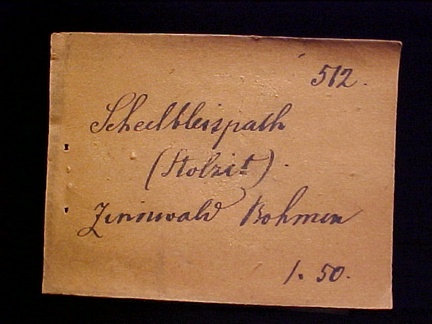 512.
Scheelbleispath
(Stolzit).
Zinnwald Bohmen
1.50.